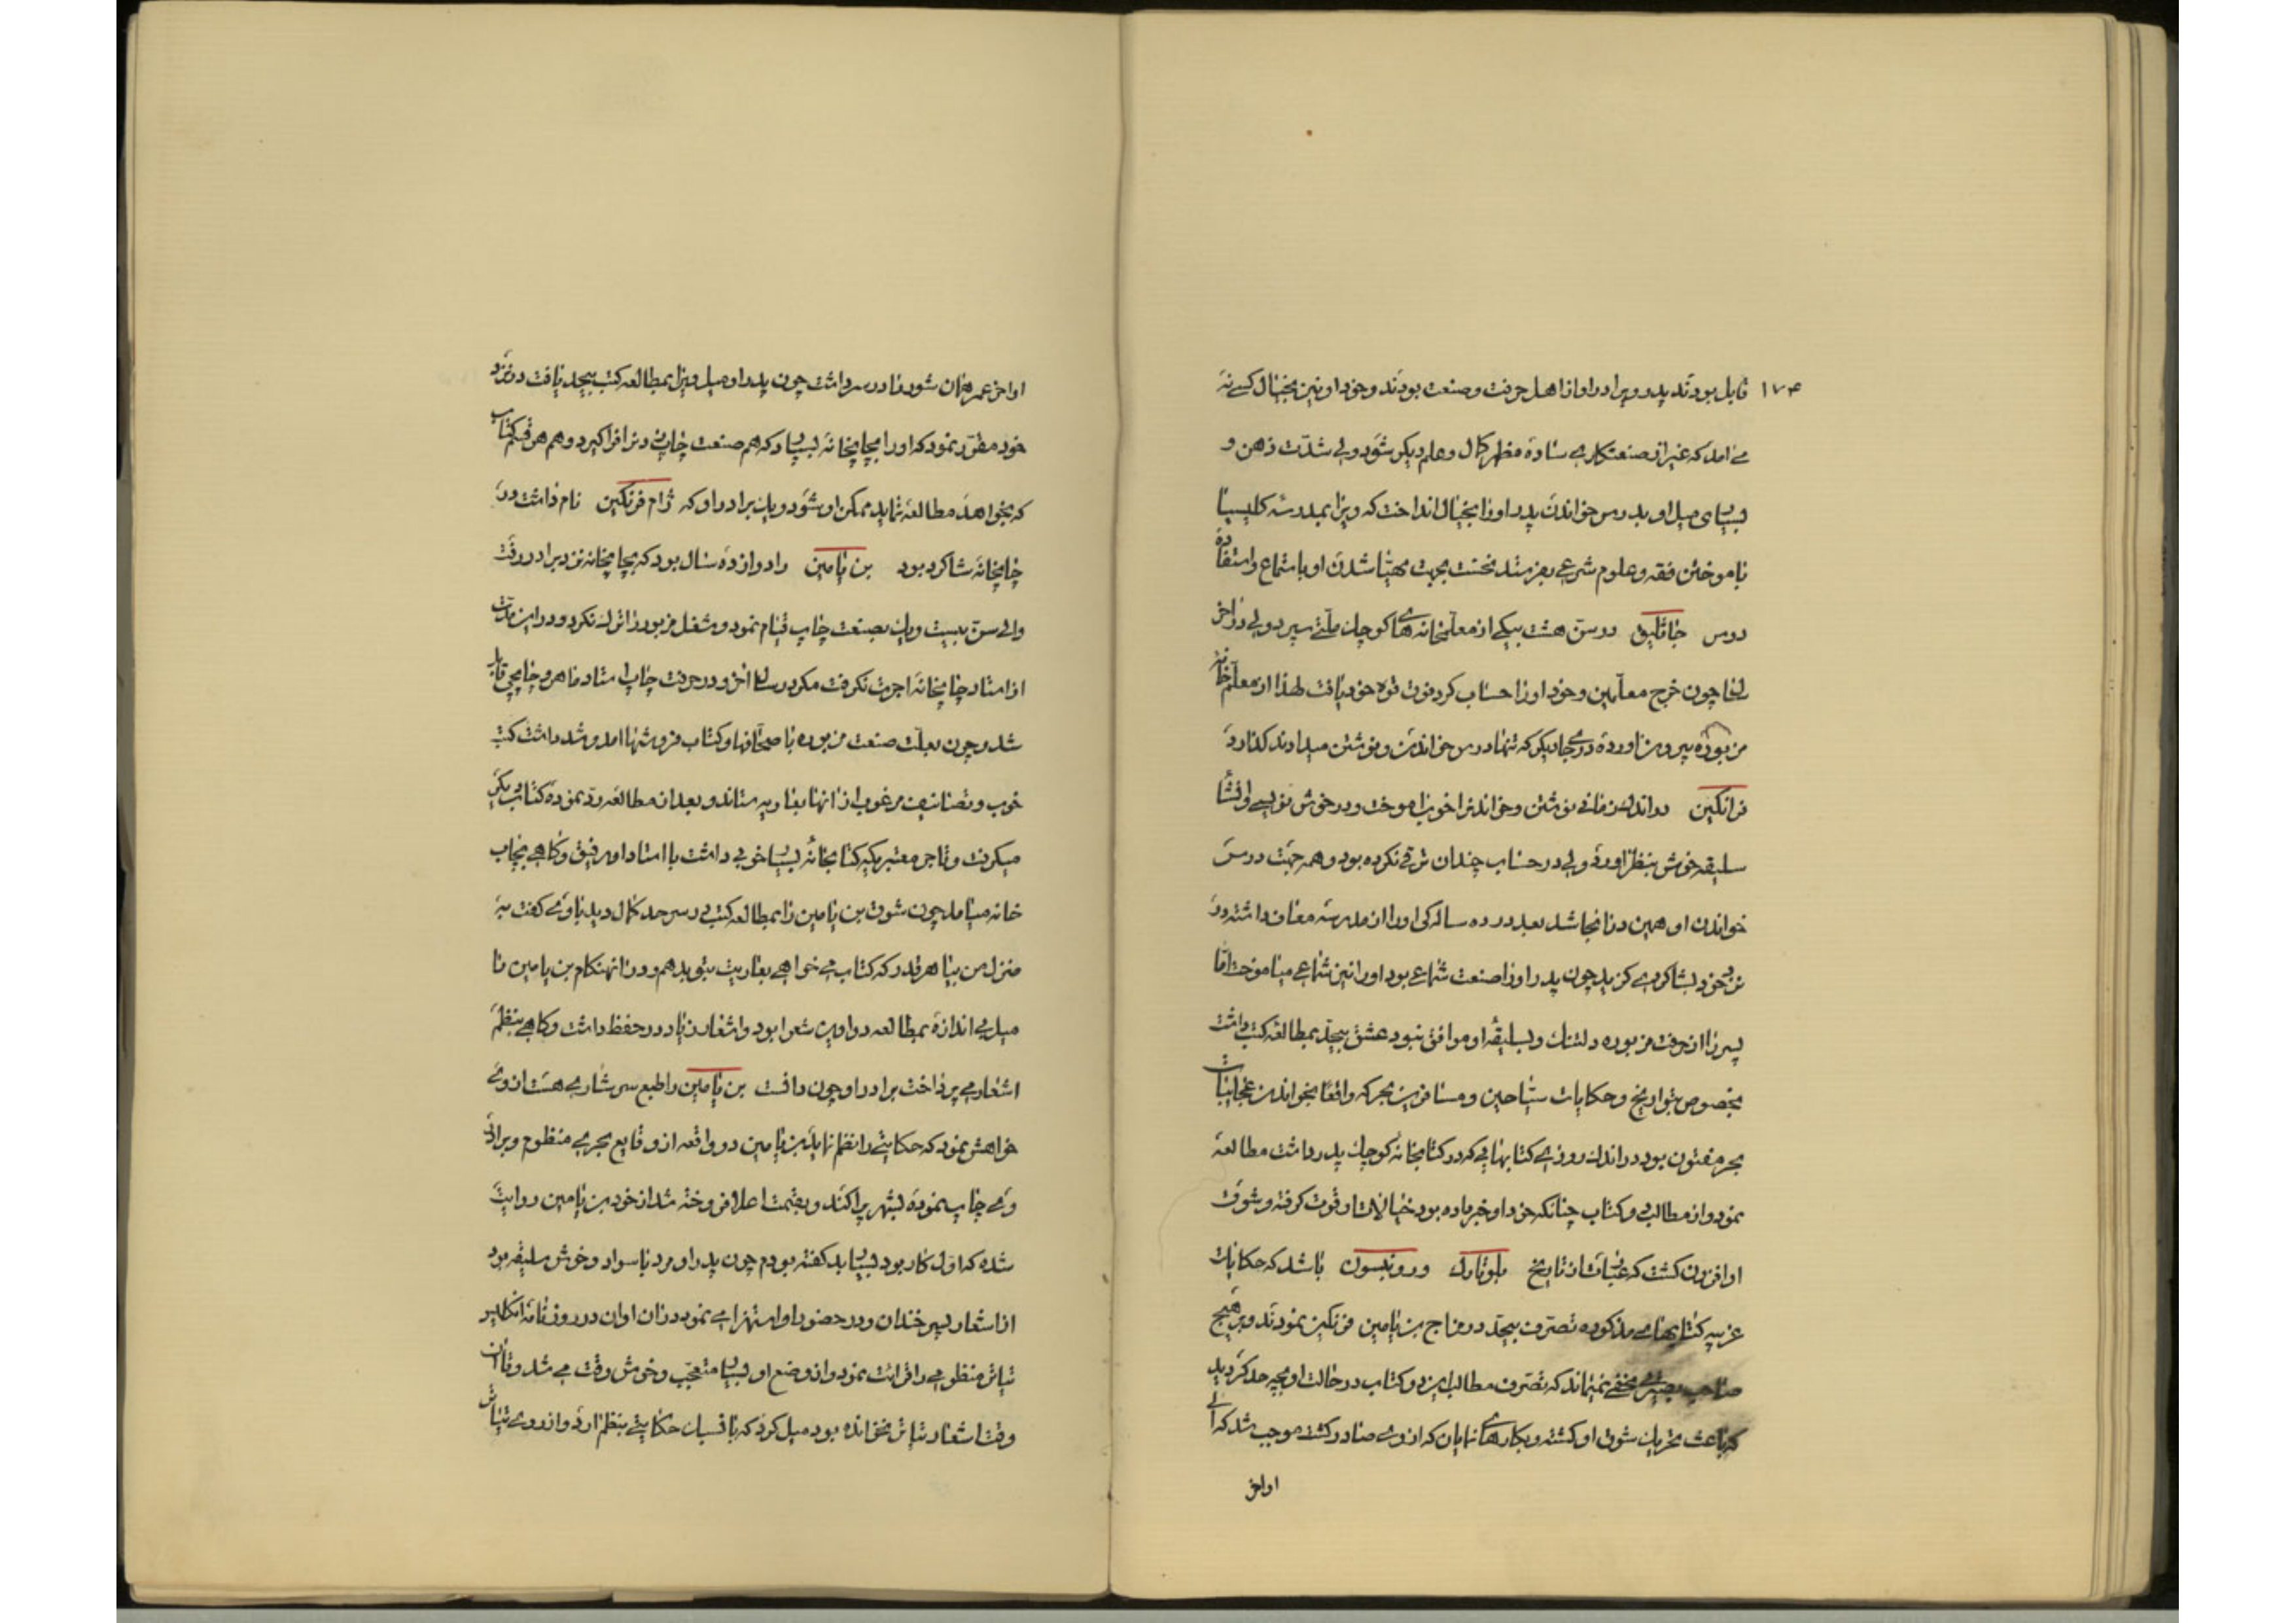 ۱۷۴
قابل بودند پدر و برادر او از اهل حرفت و صنعت بودند و خود او نیز بخیال کسے نه
مے آمد که غیر از صنعتکارے ساده مظهر کمال و علم دیکر شود ولی شدت ذهن و
بسیاری میل او بدرس خواندن پدر او را بخیال انداخت که ویرا بمدرسه کلیسیا
بآموختن فقه و علوم شرعی بفرستد نخست بجهت مهیا شدن او باستماع و استفاده
درس جاثلیق در سن هشت بیکے از معلمخانه هاے کوچك ملتے سپرد ولی در آخر
چون خرج معلمین و خود او را حساب کرد فوق قوه خود یافت لهذا از معلمخانه
مزبوره بیرون آورده در جاے دیکر که تنها درس خواندن و نوشتن میدادند کذارد
فرانکلین در اندك زمانے نوشتن و خواندن را خوب آموخت و در خوش نویسے و انشا
سلیقه خوش بنظر آورد ولی در حساب چندان ترقے نکرده بود و همه جهت درس
خواندن او همین در آنجا شد بعد در ده سالکی او را از مدرسه معاف داشته در
نزد خود بشاکردے کزید چون پدر او را صنعت شماعے بود او را نیز شماعے میاموخت اما
پسر را از حرفت مزبوره دلتنك و بسلیقهٔ او موافق نبود عشق بیحد بمطالعه کتب داشت
بخصوص بتواریخ و حکایات سیاحین و مسافرین بحر که واقعا بخواندن عجایبات
بحر مفتون بود در اندك روزے کتابهایی که در کتابخانهٔ کوچك پدر داشت مطالعه
نمود و از مطالب دو کتاب چنانکه خود او خبر داده بود خیالات او قوت کرفته و شوق
او افزون کشت که عبارت از تاریخ پلوتارك و روبنسون باشد که حکایات
غریبه کتابهاے مذکوره تصرف بیحد در مزاج بن یامین فرنکلین نمودند و بر هیچ
صاحب بصیرتے مخفے نمیماند که تصرف مطالب این دو کتاب در حالت او بچه حد کردید
که باعث تحریك شوق او کشته و بکارهاے نمایان که از وے صادر کشت موجب شد که الی
اواخر
اواخر عمر همان شور را در سر داشت چون پدر او میل ویرا بمطالعه کتب بیحد یافت در نزد
خود مقرر نمود که او را بچاپخانه بسپارد که هم صنعت چاپ زدن را فرا کیرد و هم هر قسم کتاب
که بخواهد مطالعه نماید ممکن او شود و یك برادر او که ژام فرنکلین نام داشت در
چاپخانه شاکرد بود بن یامین را دوازده سال بود که بچاپخانه نزد برادر رفت
و الی سن بیست و یك بصنعت چاپ قیام نمود و شغل مزبور را ترك نکرد و در این مدت
از استاد چاپخانه اجرت نکرفت مکر در سال آخر و در حرفت چاپ استاد ماهر و چاپچی قابل
شد و چون بعلت صنعت مزبوره با صحافها و کتاب فروشها آمد و شد داشت کتب
خوب و تصانیف مرغوب از آنها بعاریه ستاند و بعد از مطالعه رد نموده کتاب دیکر
میکرفت و تاجر معتبریکه کتابخانهٔ بسیار خوبی داشت با استاد او رفیق و کاهے بچاپ
خانه میامد چون شوق بن یامین را بمطالعه کتب در سر حد کمال دید باو مے کفت به
منزل من بیا هر قدر که کتاب مے خواهے بعاریت بتو بدهم و در آنهنکام بن یامین را
میل بی اندازه بمطالعه دواوین شعرا بود و اشعار زیاد در حفظ داشت و کاهے بنظم
اشعار مے پرداخت برادر او چون دانست بن یامین را طبع سرشارے هست از وے
خواهش نمود که حکایتے را نظم نماید بن یامین دو واقعه از وقایع بحرے منظوم و برادر
وے چاپ نموده بشهر پراکند و بقیمت اعلا فروخته شد از خود بن یامین روایت
شده که اول کار بود بسیار بد کفته بودم چون پدر او مرد با سواد و خوش سلیقه بود
از اشعار پسر خندان و در حضور او استهزا مے نمود در آن اوان در روزنامهٔ انکلیس
تیاتر منظومے را قرائت نمود و از وضع او بسیار متعجب و خوش وقت مے شد و تا آن
وقت اشعار تیاتر نخوانده بود میل کرد که باقسیان حکایتے بنظم آرد و از روے تیاتر